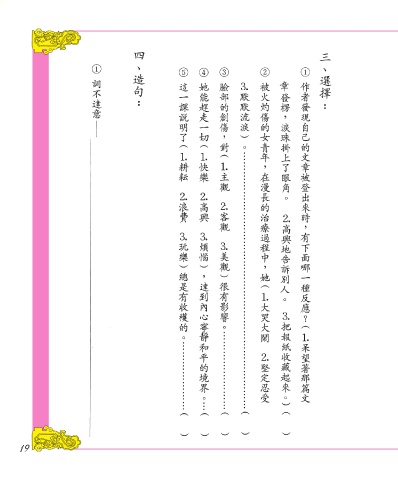 三、選擇：
①作者發現自己的文章被登出來時，有下面哪一種反應？（1.呆望著那篇文
章發楞，淚珠掛上了眼角。 2.高興地告訴別人。 3.把報紙收藏起來。）（ ）
②被火灼傷的女青年，在漫長的治療過程中，她（1.大哭大鬧 2.堅定忍受
3.默默流淚）。……………………………………（ ）
③臉部的創傷，對（1.主觀 2.客觀 3.美觀）很有影響。………………（ ）
④她能趕走一切（1.快樂 2.高興 3.煩惱），達到內心寧靜和平的境界。…（ ）
⑤這一課說明了（1.耕耘 2.浪費 3.玩樂）總是有收穫的。…………（ ）
四、造句：
①詞不達意——
19